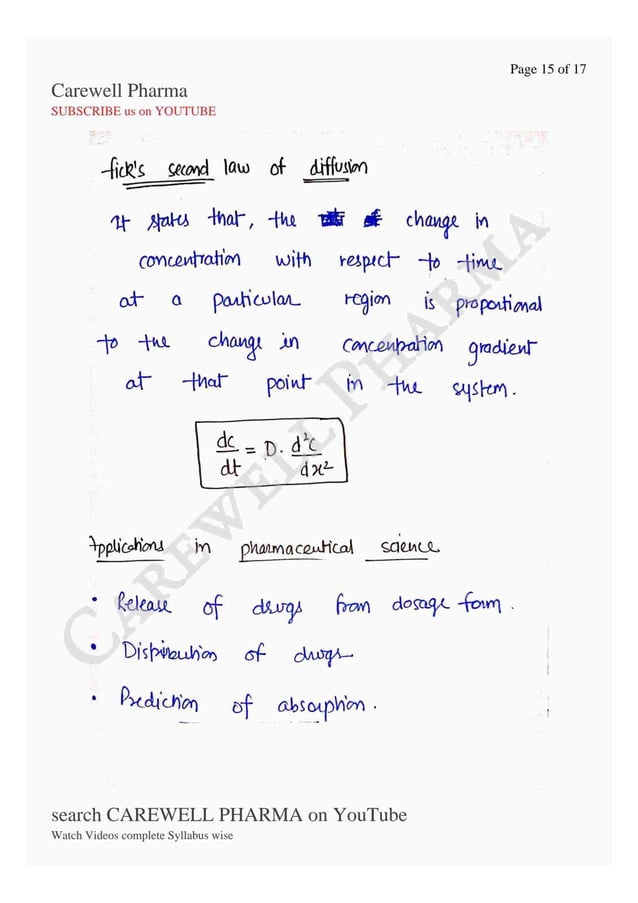 Page 15 of 17
Carewell Pharma
SUBSCRIBE us on YOUTUBE
fick's second law of diffusion
It states that, the change in
concentration with respect to time
at a particular region is proportional
to the change in concentration gradient
at that point in the system.
dc/dt = D. d²c/dx²
Applications in pharmaceutical science
• Release of drugs from dosage form.
• Distribution of drugs
• Prediction of absorption.
CAREWELL PHARMA
search CAREWELL PHARMA on YouTube
Watch Videos complete Syllabus wise